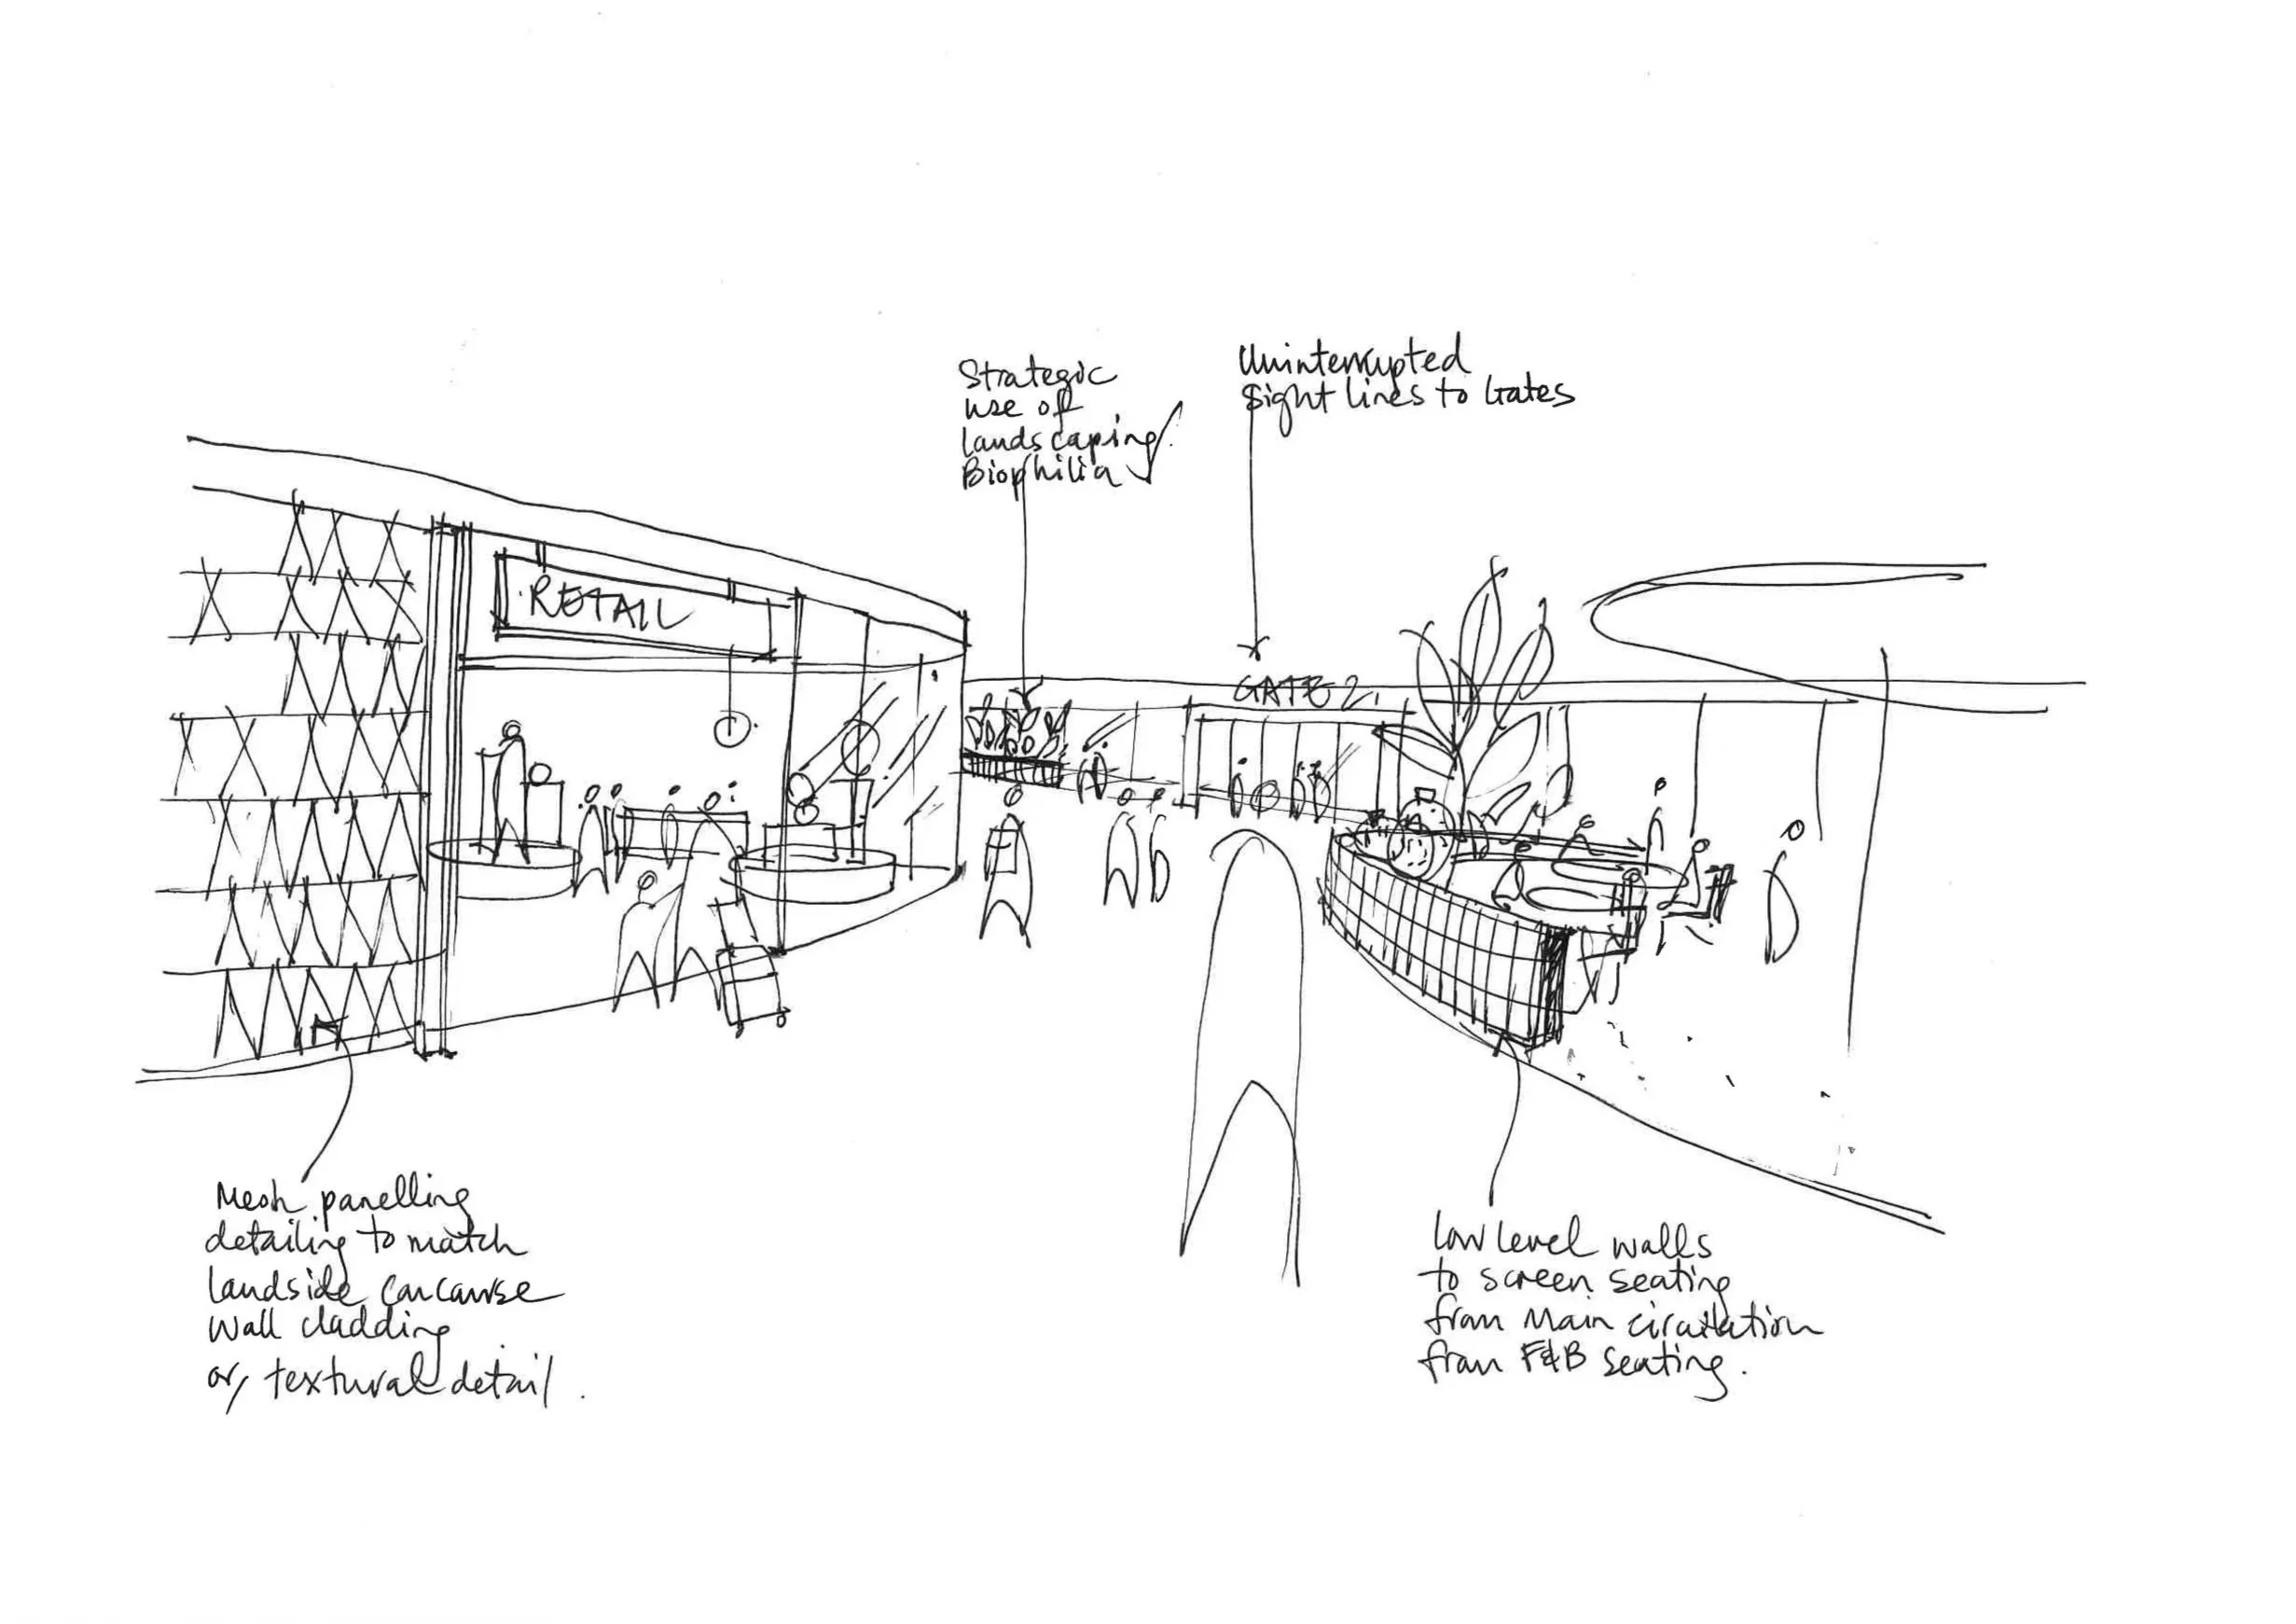 Strategic
use of
landscaping/
Biophilia
Uninterrupted
sight lines to Gates
RETAIL
GATE 2.
Mesh panelling
detailing to match
landside concourse
wall cladding
or, textural detail.
Low level walls
to screen seating
from main circulation
from F&B seating.